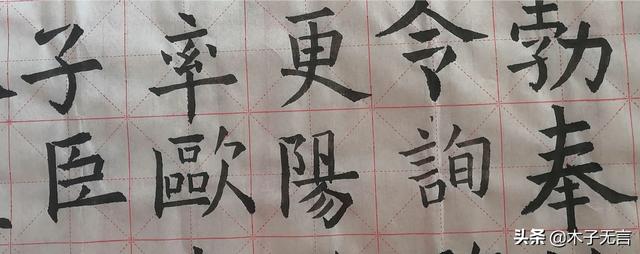 子率更令勃
臣歐陽詢奉
头条 @木子无言